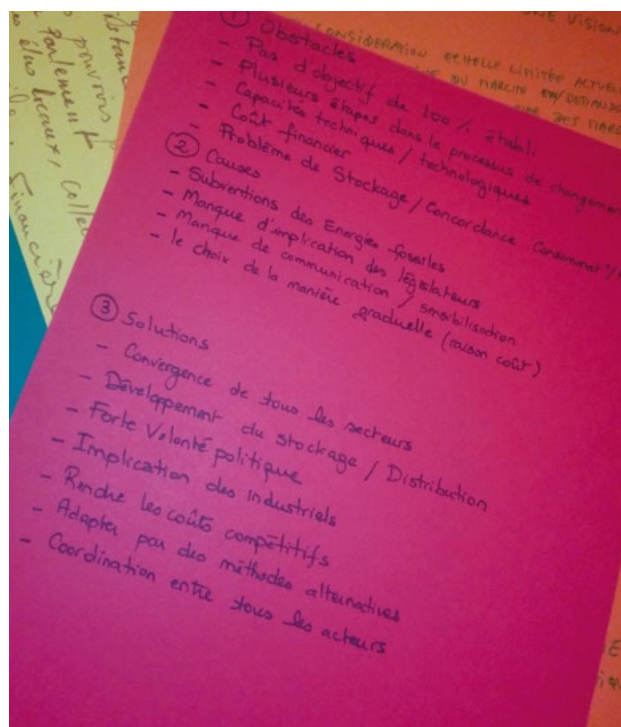 ① Obstacles
- Pas d'objectif de 100% établi.
- Plusieurs étapes dans le processus de changement
- Capacités techniques / technologiques
- Coût financier
- Problème de Stockage / Concordance Consommat°/
② Causes
- Subventions des Energies fossiles
- Manque d'implication des législateurs
- Manque de communication / sensibilisation
- le choix de la manière graduelle (raison coût)
③ Solutions
- Convergence de tous les secteurs
- Développement du Stockage / Distribution
- Forte Volonté politique
- Implication des industriels
- Rendre les coûts compétitifs
- Adapter par des méthodes alternatives
- Coordination entre tous les acteurs
pouvoirs
Parlement
élus locaux, colle
Financière
VISION
CONSIDERATION ECHELLE LIMITÉE ACTUEL
DU MARCHÉ
DES MARC